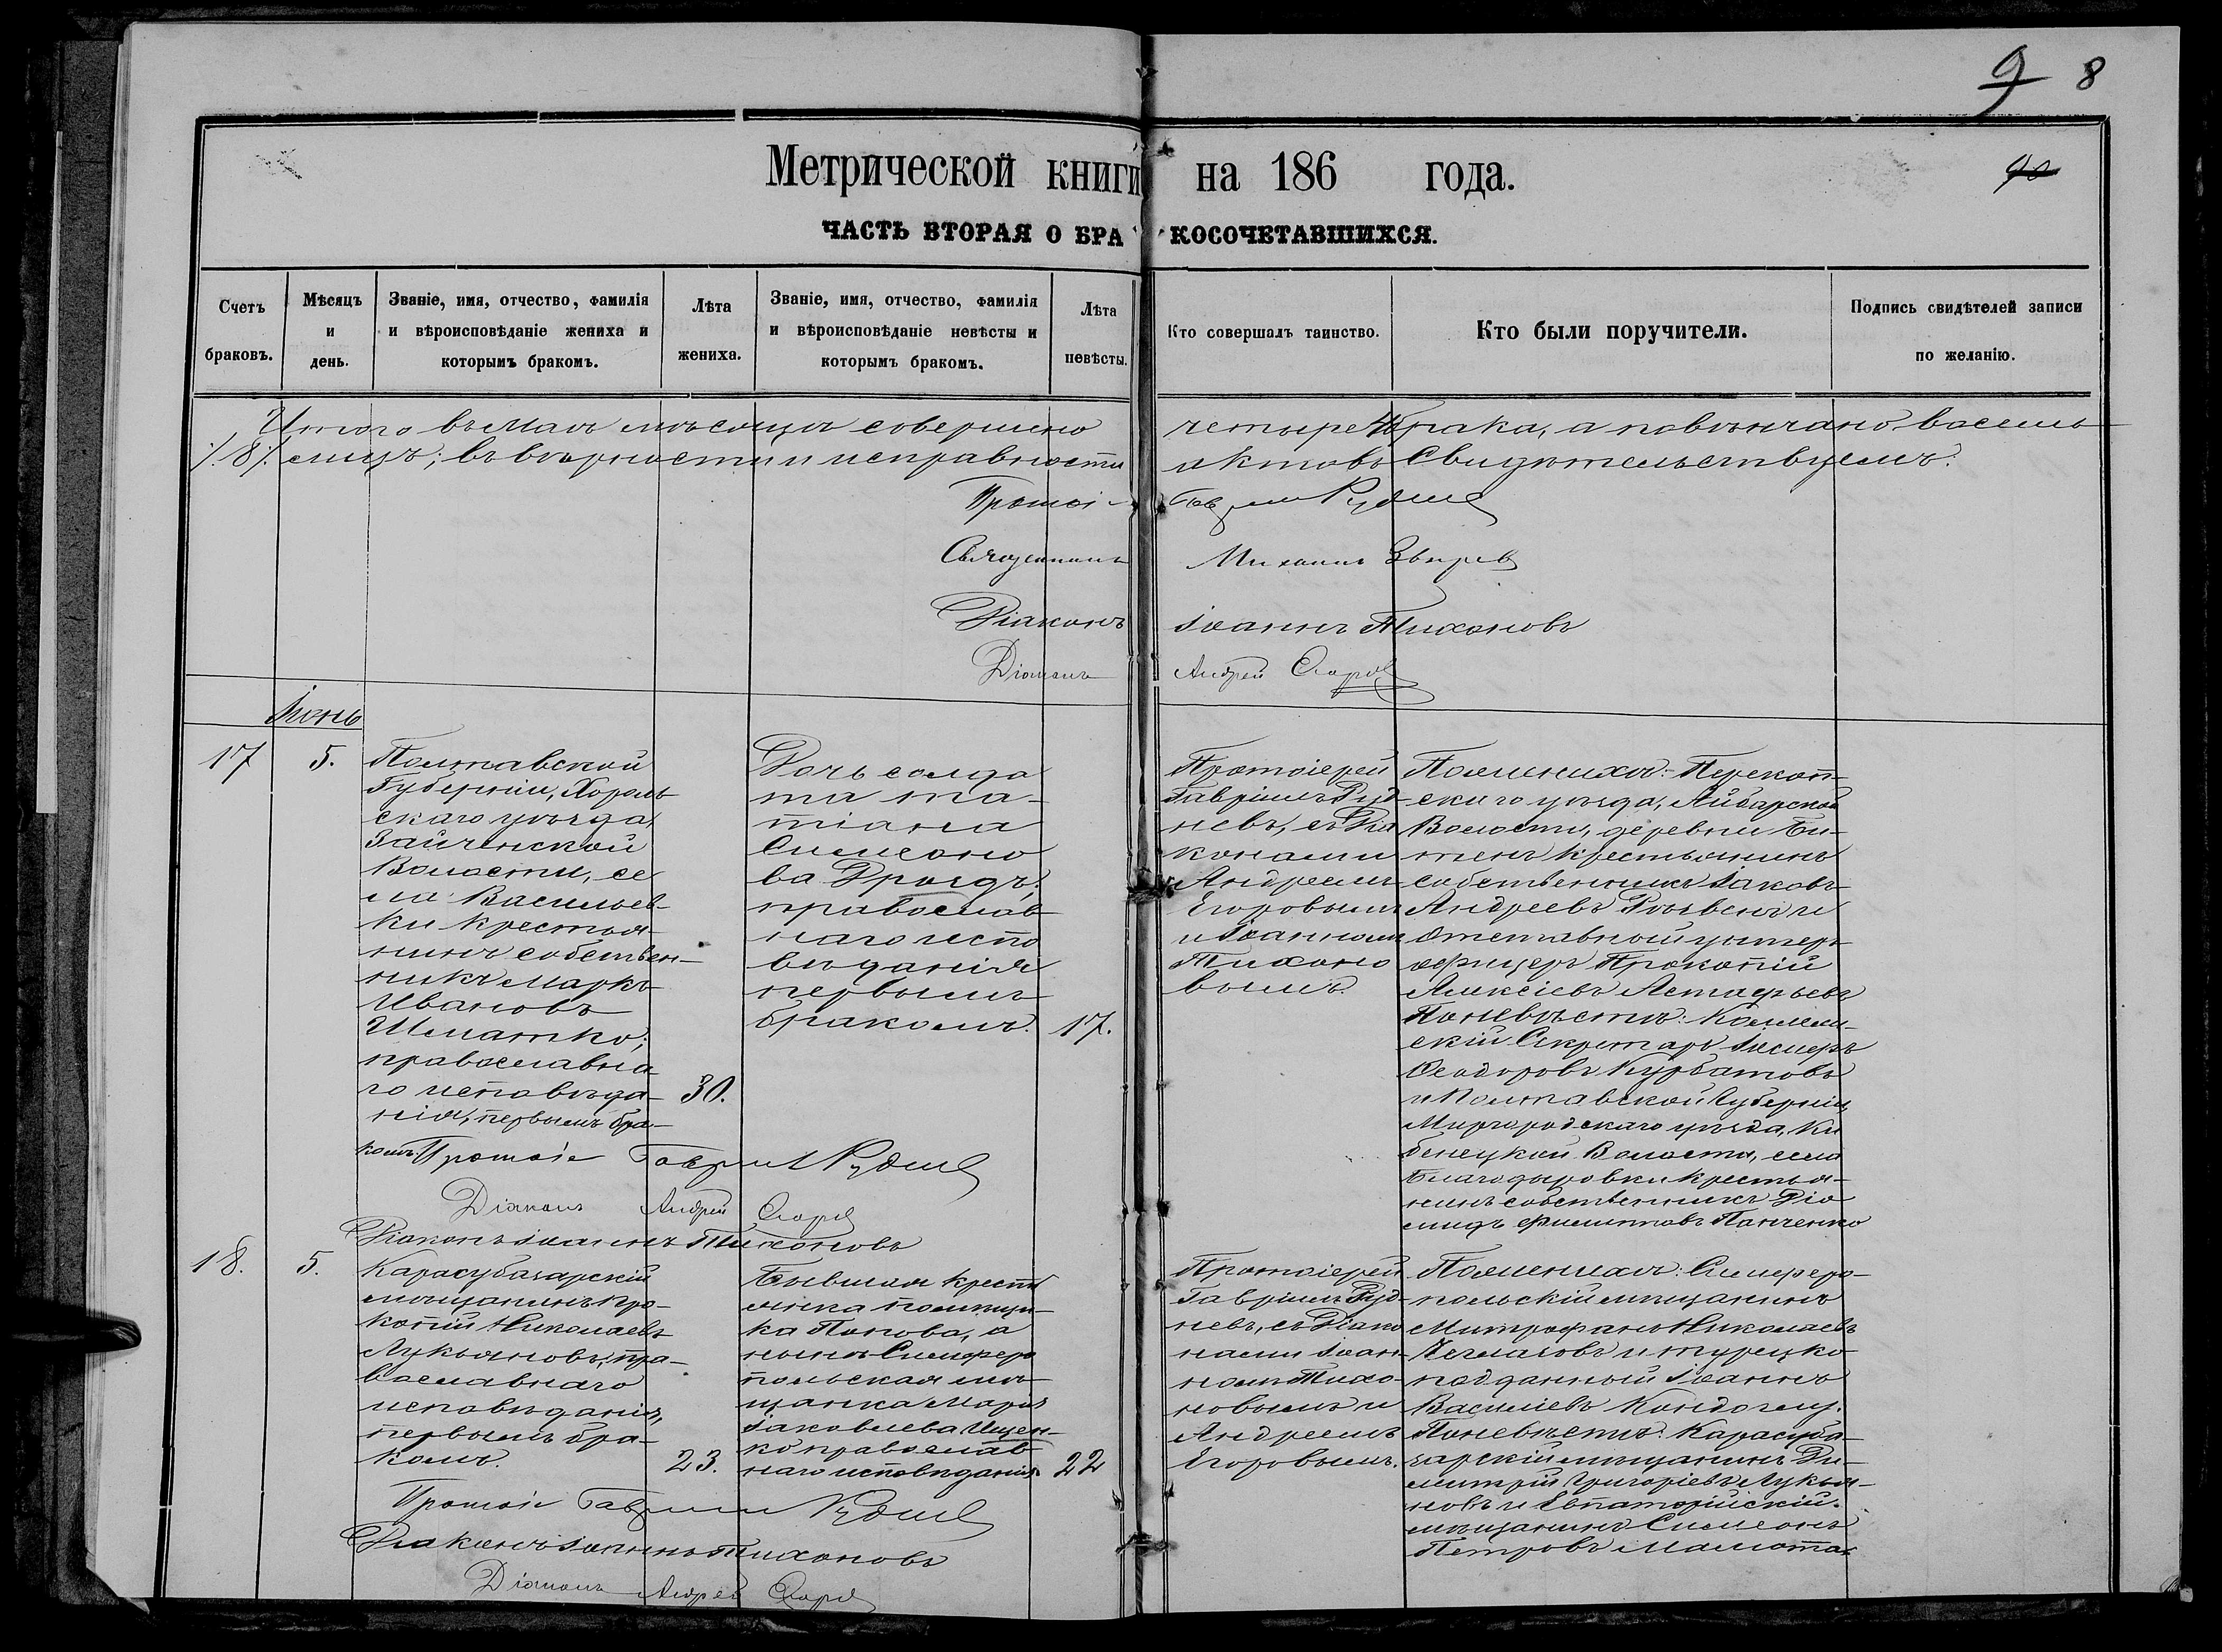 9 8
Метрической книги на 186 года.
40
ЧАСТЬ ВТОРАЯ О БРАКОСОЧЕТАВШИХСЯ.
Счетъ браковъ.
Мѣсяцъ и день.
Званіе, имя, отчество, фамилія и вѣроисповѣданіе жениха и которымъ бракомъ.
Лѣта жениха.
Званіе, имя, отчество, фамилія и вѣроисповѣданіе невѣсты и которымъ бракомъ.
Лѣта невѣсты.
Кто совершалъ таинство.
Кто были поручители.
Подпись свидѣтелей записи по желанію.
Итого въ Маѣ мѣсяцѣ совершено четыре 4 брака, а повѣнчано восемь
/. 8 /. лицъ; въ вѣрности и исправности актовъ Свидѣтельствуемъ:
Протоі Гавріил Руднев
Священникъ Михаилъ Зверев
Діаконъ Іоаннъ Тихоновъ
Діаконъ Андрей
Іюнь
17
5.
Полтавской
Губерніи, Хороль
скаго уѣзда,
Зайченской
Волости, се
ла Васильев-
ки крестья
нинъ собствен-
никъ Маркъ
Ивановъ
Шматко;
православна
го исповѣда-
нія, первымъ бра-
комъ.
30.
Дочь солда
та Та-
тіана
Симеоно
ва Дроздъ;
православ
наго испо
вѣданія
первымъ
бракомъ.
17.
Протоіерей
Гавріилъ Руд-
невъ, съ Діа
конами
Андреемъ
Егоровымъ
и Іоанномъ
Тихоно
вымъ.
По женихѣ: Перекоп-
скаго уѣзда, Айбарской
Волости, деревни Би-
тенъ крестьянинъ
собственникъ Іаковъ
Андреевъ и
Отставной унтеръ
офицеръ Прокопій
Алексіевъ Астафьевъ
По невѣстѣ: Коллеж-
скій Секретарь
Ѳеодоровъ Курбатовъ
и Полтавской Губерніи,
Миргородскаго уѣзда, Ки
бенецкой Волости, села
крестья-
нинъ собственникъ Діо
мидъ Филипповъ Панченко
Протоіе Гавріил Руднев
Діаконъ Андрей
Діаконъ Іоаннъ Тихоновъ
18.
5.
Карасубазарскій
мѣщанинъ Про-
копій Николаевъ
Лукьяновъ, пра-
вославнаго
исповѣданія,
первымъ бра-
комъ.
23.
Бывшая крестья
янка помѣщи-
ка Попова, а
нынѣ Симферо
польская мѣ-
щанка Марія
Іаковлева Ищен-
ко православ
наго исповѣданія
22
Протоіерей
Гавріилъ Руд-
невъ, съ Діако
нами Іоан-
номъ Тихо-
новымъ и
Андреемъ
Егоровымъ.
По женихѣ: Симферо-
польскій мѣщанинъ
Митрофанъ Николаевъ
и турецко
подданный Іоаннъ
Василіевъ
По невѣстѣ: Карасуба-
зарскій мѣщанинъ Ди-
митрій Григоріевъ Лукья-
новъ и Евпаторійскій
мѣщанинъ Симеонъ
Петровъ
Протоіе Гавріил Руднев
Діаконъ Іоаннъ Тихоновъ
Діаконъ Андрей